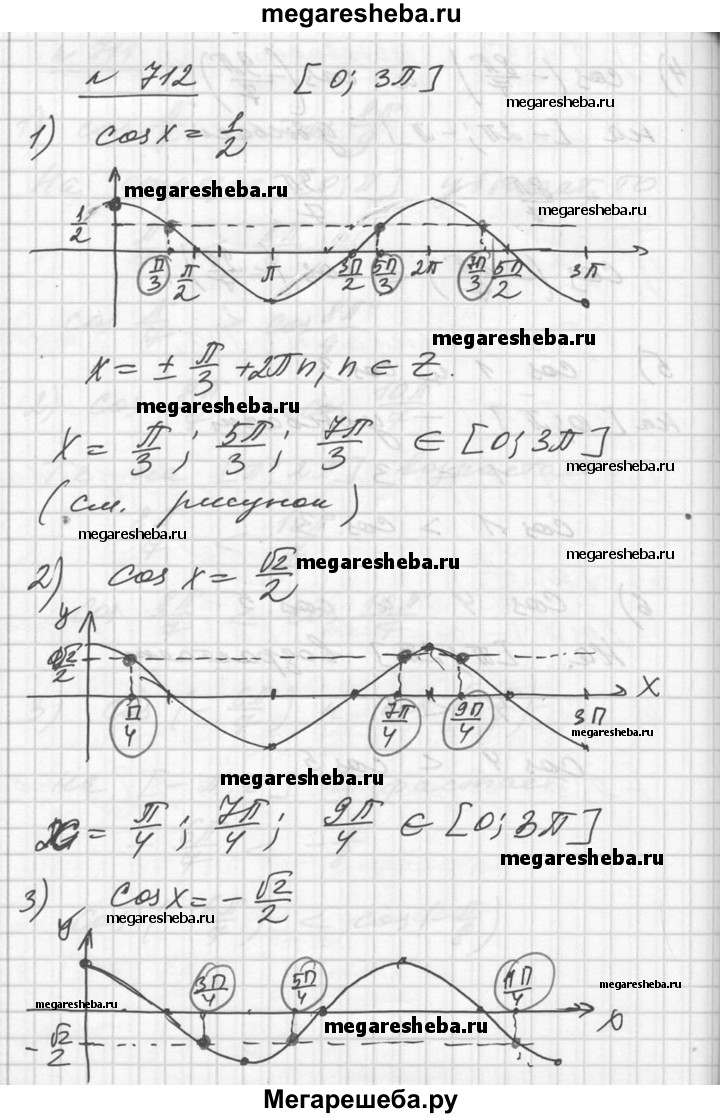 megaresheba.ru
№ 712 [0; 3π]
megaresheba.ru
1) cos x = 1/2
megaresheba.ru
megaresheba.ru
1/2
π/3 π/2 π 3π/2 5π/3 2π 7π/3 5π/2 3π
megaresheba.ru
x = ± π/3 + 2πn, n ∈ Z.
megaresheba.ru
x = π/3; 5π/3; 7π/3 ∈ [0; 3π]
megaresheba.ru
(см. рисунок)
megaresheba.ru
megaresheba.ru
2) cos x = √2/2
megaresheba.ru
y
√2/2
x
π/4 7π/4 9π/4 3π
megaresheba.ru
megaresheba.ru
x = π/4; 7π/4; 9π/4 ∈ [0; 3π]
megaresheba.ru
3) cos x = -√2/2
megaresheba.ru
y
3π/4 5π/4 11π/4
megaresheba.ru
megaresheba.ru
megaresheba.ru
x
-√2/2
Мегарешеба.ру